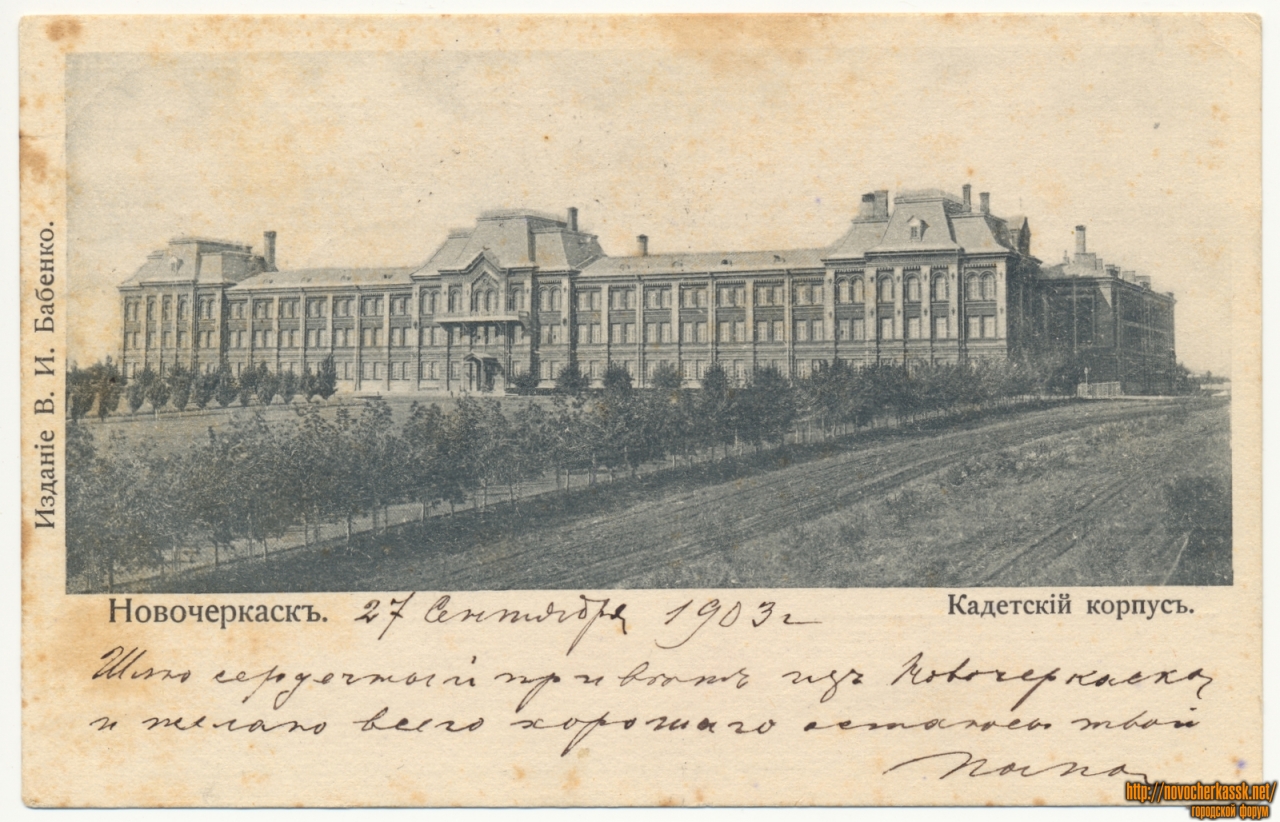 Изданіе В. И. Бабенко.
Новочеркаскъ. 27 Сентября 1903 г
Кадетскій корпусъ.
Шлю сердечный привѣтъ изъ Новочеркаска
и желаю всего хорошаго остаюсь твой
Папа
http://novocherkassk.net/
городской форум